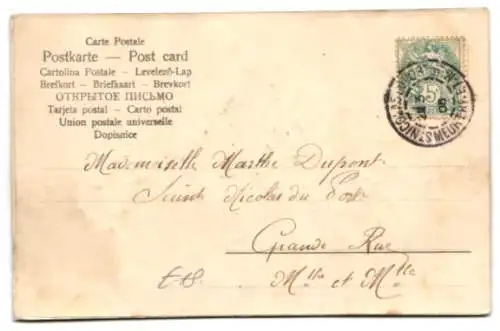 Carte Postale
Postkarte — Post card
Cartolina Postale - Levelező-Lap
Brefkort - Briefkaart - Brevkort
ОТКРЫТОЕ ПИСЬМО
Tarjeta postal - Carto postal
Union postale universelle
Dopisnice
Mademoiselle Marthe Dupont
Saint Nicolas du Port
Grande Rue
Mthe et Mlle
5